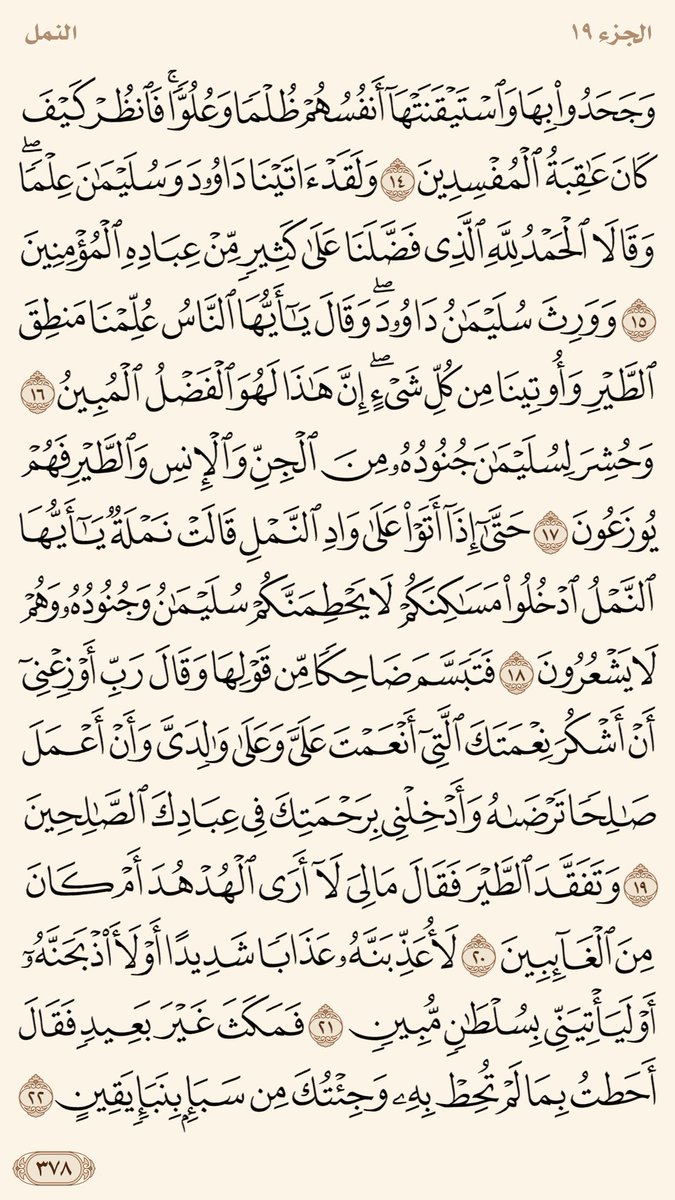 الجزء ١٩ النمل
وَجَحَدُوا۟ بِهَا وَٱسْتَيْقَنَتْهَآ أَنفُسُهُمْ ظُلْمًا وَعُلُوًّا ۚ فَٱنظُرْ كَيْفَ
كَانَ عَـٰقِبَةُ ٱلْمُفْسِدِينَ ١٤ وَلَقَدْ ءَاتَيْنَا دَاوُۥدَ وَسُلَيْمَـٰنَ عِلْمًا ۖ
وَقَالَا ٱلْحَمْدُ لِلَّهِ ٱلَّذِى فَضَّلَنَا عَلَىٰ كَثِيرٍ مِّنْ عِبَادِهِ ٱلْمُؤْمِنِينَ
١٥ وَوَرِثَ سُلَيْمَـٰنُ دَاوُۥدَ ۖ وَقَالَ يَـٰٓأَيُّهَا ٱلنَّاسُ عُلِّمْنَا مَنطِقَ
ٱلطَّيْرِ وَأُوتِينَا مِن كُلِّ شَىْءٍ ۖ إِنَّ هَـٰذَا لَهُوَ ٱلْفَضْلُ ٱلْمُبِينُ ١٦
وَحُشِرَ لِسُلَيْمَـٰنَ جُنُودُهُۥ مِنَ ٱلْجِنِّ وَٱلْإِنسِ وَٱلطَّيْرِ فَهُمْ
يُوزَعُونَ ١٧ حَتَّىٰٓ إِذَآ أَتَوْا۟ عَلَىٰ وَادِ ٱلنَّمْلِ قَالَتْ نَمْلَةٌ يَـٰٓأَيُّهَا
ٱلنَّمْلُ ٱدْخُلُوا۟ مَسَـٰكِنَكُمْ لَا يَحْطِمَنَّكُمْ سُلَيْمَـٰنُ وَجُنُودُهُۥ وَهُمْ
لَا يَشْعُرُونَ ١٨ فَتَبَسَّمَ ضَاحِكًا مِّن قَوْلِهَا وَقَالَ رَبِّ أَوْزِعْنِىٓ
أَنْ أَشْكُرَ نِعْمَتَكَ ٱلَّتِىٓ أَنْعَمْتَ عَلَىَّ وَعَلَىٰ وَٰلِدَىَّ وَأَنْ أَعْمَلَ
صَـٰلِحًا تَرْضَىٰهُ وَأَدْخِلْنِى بِرَحْمَتِكَ فِى عِبَادِكَ ٱلصَّـٰلِحِينَ
١٩ وَتَفَقَّدَ ٱلطَّيْرَ فَقَالَ مَا لِىَ لَآ أَرَى ٱلْهُدْهُدَ أَمْ كَانَ
مِنَ ٱلْغَآئِبِينَ ٢٠ لَأُعَذِّبَنَّهُۥ عَذَابًا شَدِيدًا أَوْ لَأَا۟ذْبَحَنَّهُۥٓ
أَوْ لَيَأْتِيَنِّى بِسُلْطَـٰنٍ مُّبِينٍ ٢١ فَمَكَثَ غَيْرَ بَعِيدٍ فَقَالَ
أَحَطتُ بِمَا لَمْ تُحِطْ بِهِۦ وَجِئْتُكَ مِن سَبَإٍۭ بِنَبَإٍ يَقِينٍ ٢٢
٣٧٨